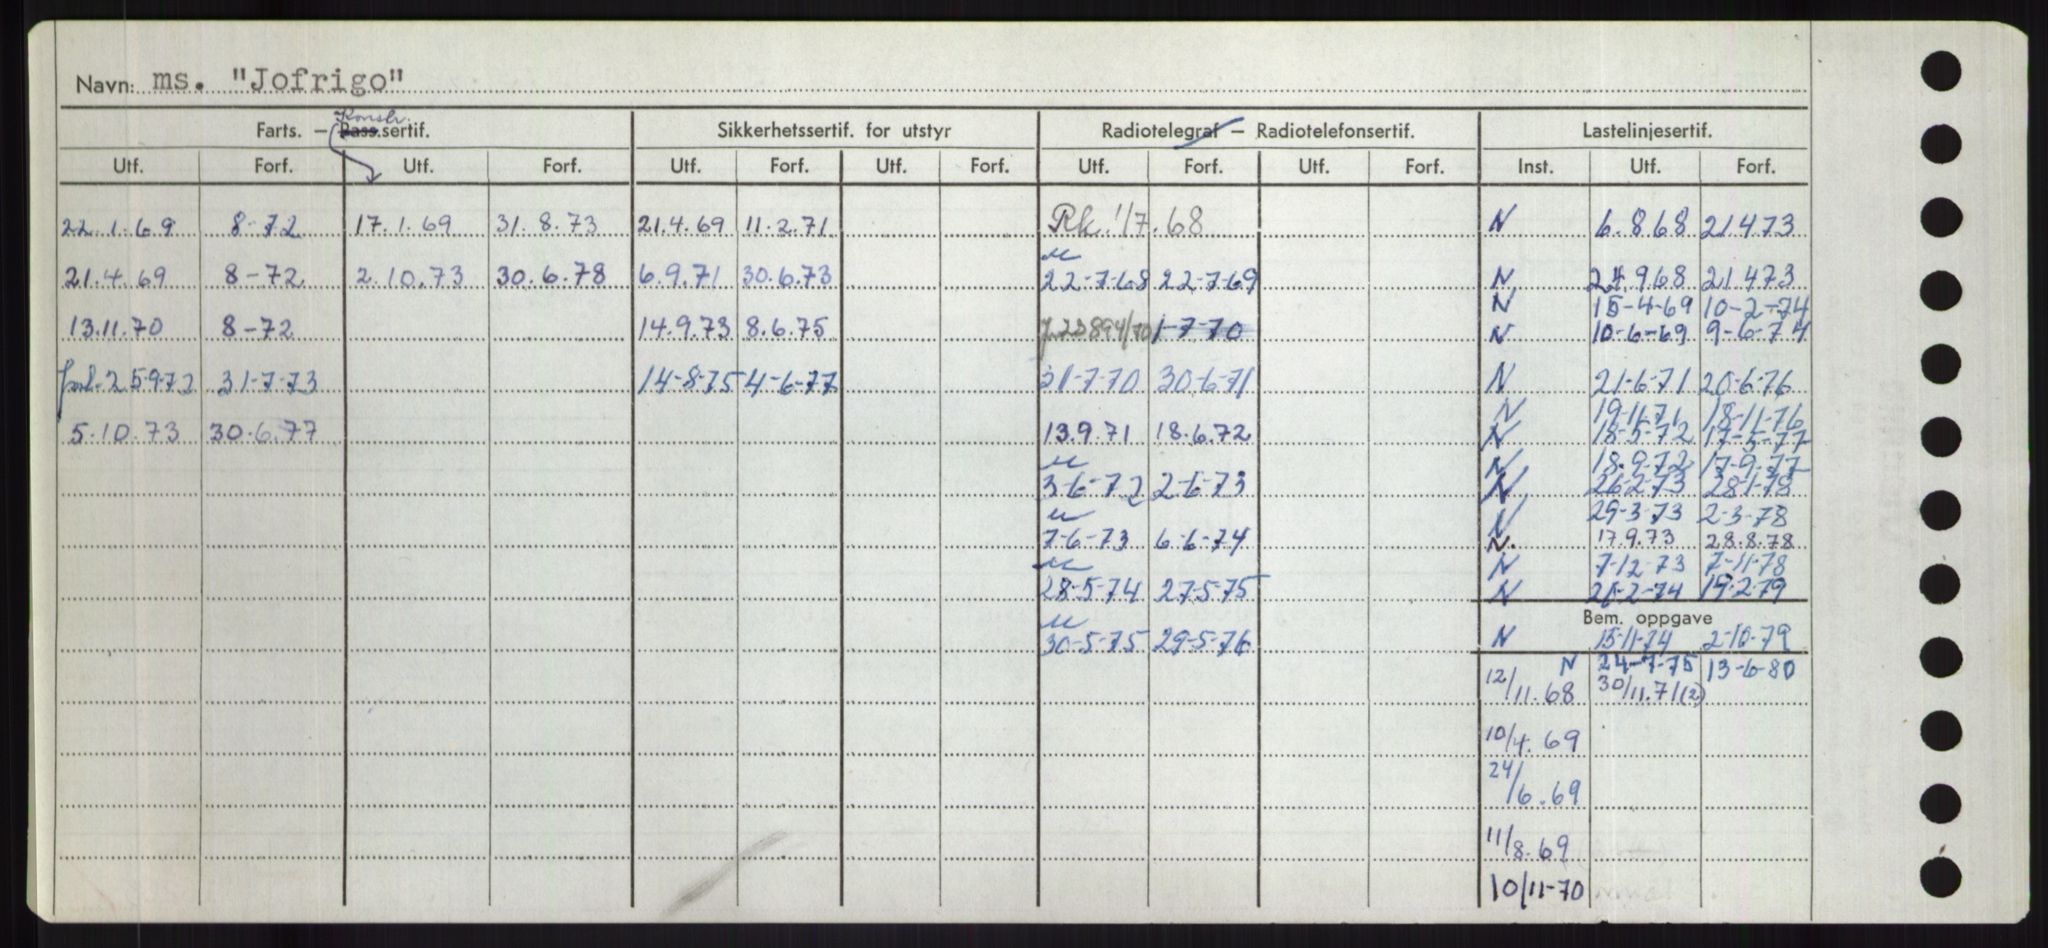 Navn: ms. "Jofrigo"
Konstr.
Farts. – Pass.sertif. Sikkerhetssertif. for utstyr Radiotelegraf – Radiotelefonsertif. Lastelinjesertif.
Utf. Forf. Utf. Forf. Utf. Forf. Utf. Forf. Utf. Forf. Utf. Forf. Inst. Utf. Forf.
22.1.69 8-72 17.1.69 31.8.73 21.4.69 11.2.71 Rk. 1/7.68 N 6.868 21473
21.4.69 8-72 2.10.73 30.6.78 6.9.71 30.6.73 22-7-68 22-7-69 N 24.968 21.473
N 15-4-69 10-2-74
13.11.70 8-72 14.9.73 8.6.75 1-7-70 N 10-6-69 9-6-74
forl. 25-9-72 31-7-73 14-8-75 4-6-77 31-7-70 30-6-71 N 21-6-71 20-6-76
N 19-11-71 18-11-76
5.10.73 30.6.77 13.9.71 18.6.72 N 18-5-72 17-5-77
N 18-9-72 17-9-77
3-6-72 2-6-73 N 26-2-73 28-1-78
N 29-3-73 2-3-78
7-6-73 6-6-74 N. 17.9.73 28.8.78
N 7-12-73 7-11-78
28-5-74 27-5-75 N 21-2-74 19-2-79
Bem. oppgave
30-5-75 29-5-76 N 15-11-74 2-10-79
N 24-7-75 13-6-80
12/11.68 30/11.71(2)
10/4.69
24/6.69
11/8.69
10/11-70